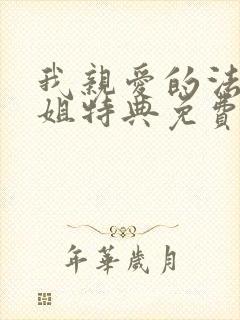 我親愛的法
姐特典免費
年華歲月